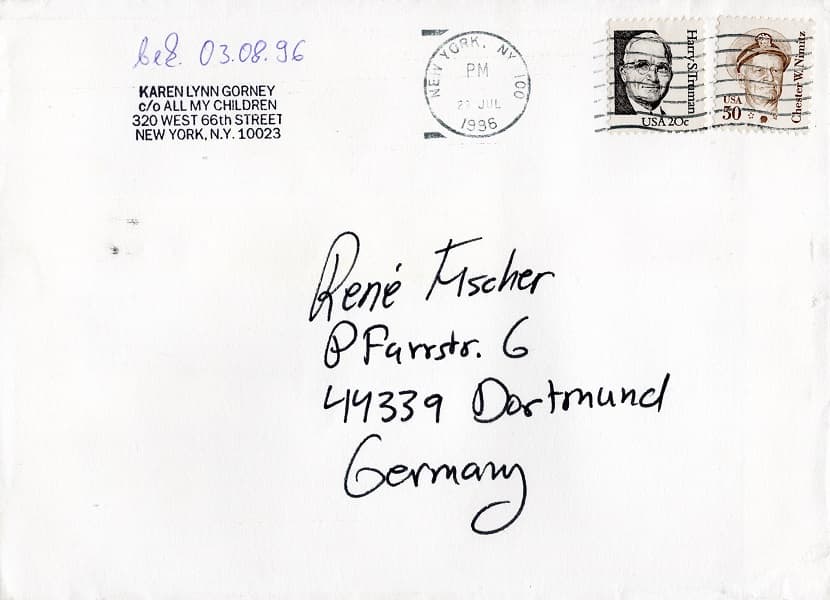 bez. 03.08.96
KAREN LYNN GORNEY
c/o ALL MY CHILDREN
320 WEST 66th STREET
NEW YORK, N.Y. 10023
NEW YORK, NY 100
PM
JUL
1996
Harry S. Truman
USA 20c
Chester W. Nimitz
USA
50
René Fischer
Pfarrstr. 6
44339 Dortmund
Germany